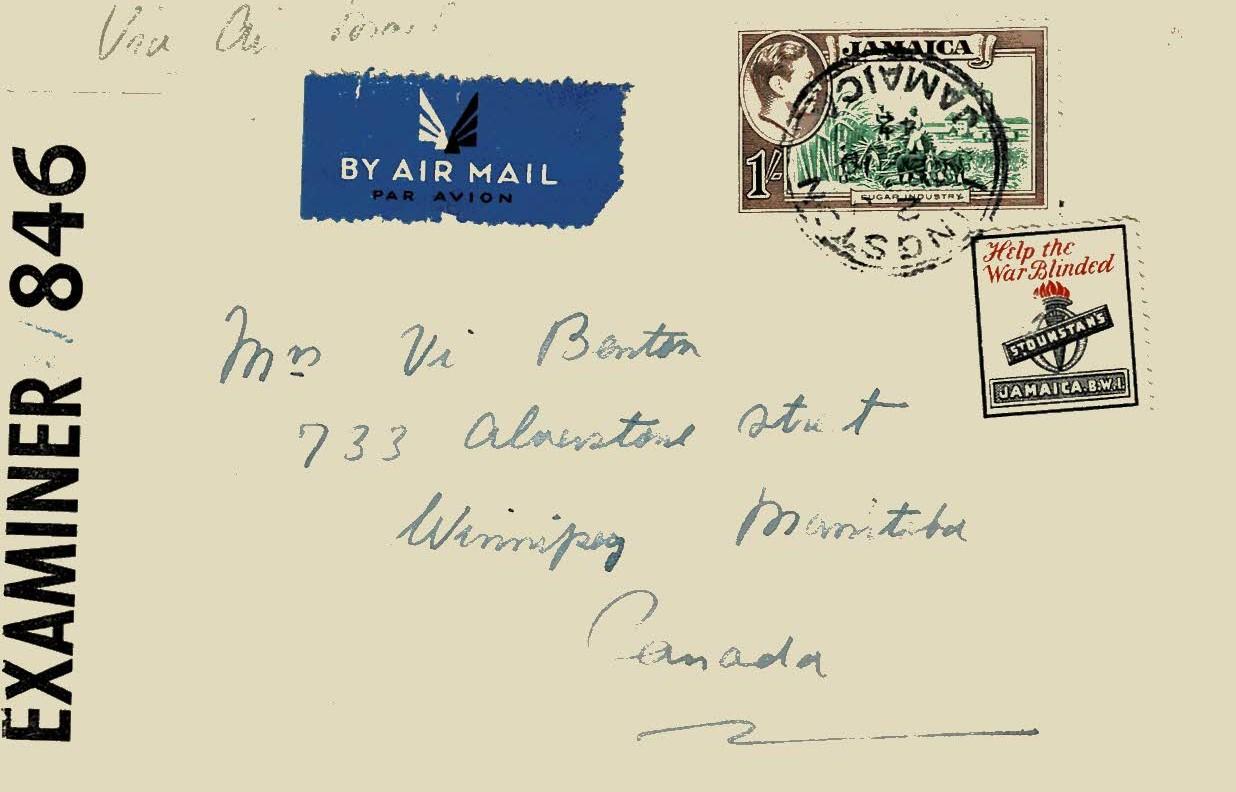 Via Air Mail
BY AIR MAIL
PAR AVION
JAMAICA
1/-
SUGAR INDUSTRY
JAMAICA
44
KINGSTON
Help the
War Blinded
ST DUNSTAN'S
JAMAICA.B.W.I.
EXAMINER 846
Mrs Vi Benton
733 Alverstone Street
Winnipeg Manitoba
Canada